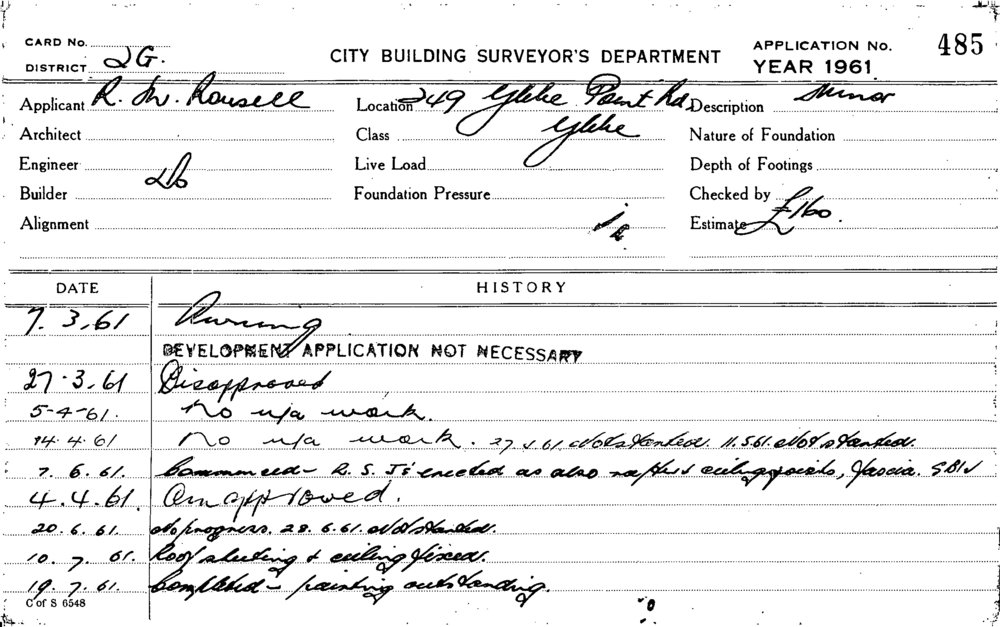 CARD No.
DISTRICT 2G.
CITY BUILDING SURVEYOR'S DEPARTMENT
APPLICATION No. 485
YEAR 1961
Applicant R. W. Rousell Location 249 Glebe Point Rd, Description Minor
Architect Class Glebe Nature of Foundation
Engineer Live Load Depth of Footings
Builder Do Foundation Pressure Checked by
Alignment Estimate £160.
DATE HISTORY
7. 3. 61 Awning
DEVELOPMENT APPLICATION NOT NECESSARY
27. 3. 61 Disapproved
5-4-61. No u/a work.
14. 4. 61 No u/a work. 27.4.61 Not started. 11.5.61. Not started.
7. 6. 61. Commenced - R. S. Js erected as also rafters & ceiling joists, fascia.
4. 4. 61. Am approved.
20. 6. 61. No progress. 28. 6. 61. Not started.
10. 7. 61. Roof sheeting & ceiling fixed.
19. 7. 61. Completed - painting outstanding.
C of S 6548